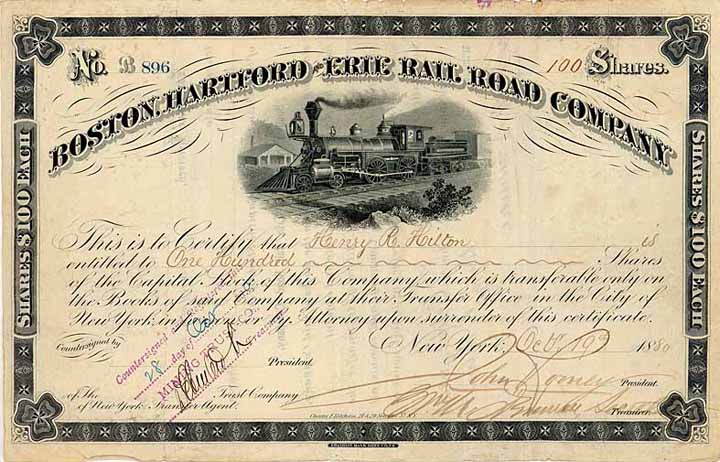 No. B 896
100 Shares.
BOSTON, HARTFORD AND ERIE RAIL ROAD COMPANY
SHARES $100 EACH
SHARES $100 EACH
This is to Certify that Henry R. Hilton is
entitled to One Hundred Shares
of the Capital Stock of this Company which is transferable only on
the Books of said Company at their Transfer Office in the City of
New York in person or by Attorney upon surrender of this certificate.
Countersigned by
New York, Oct 19 1880
Countersigned
28 day of Oct
President.
President.
of The Trust Company
of New York Transfer Agent.
Treasurer.